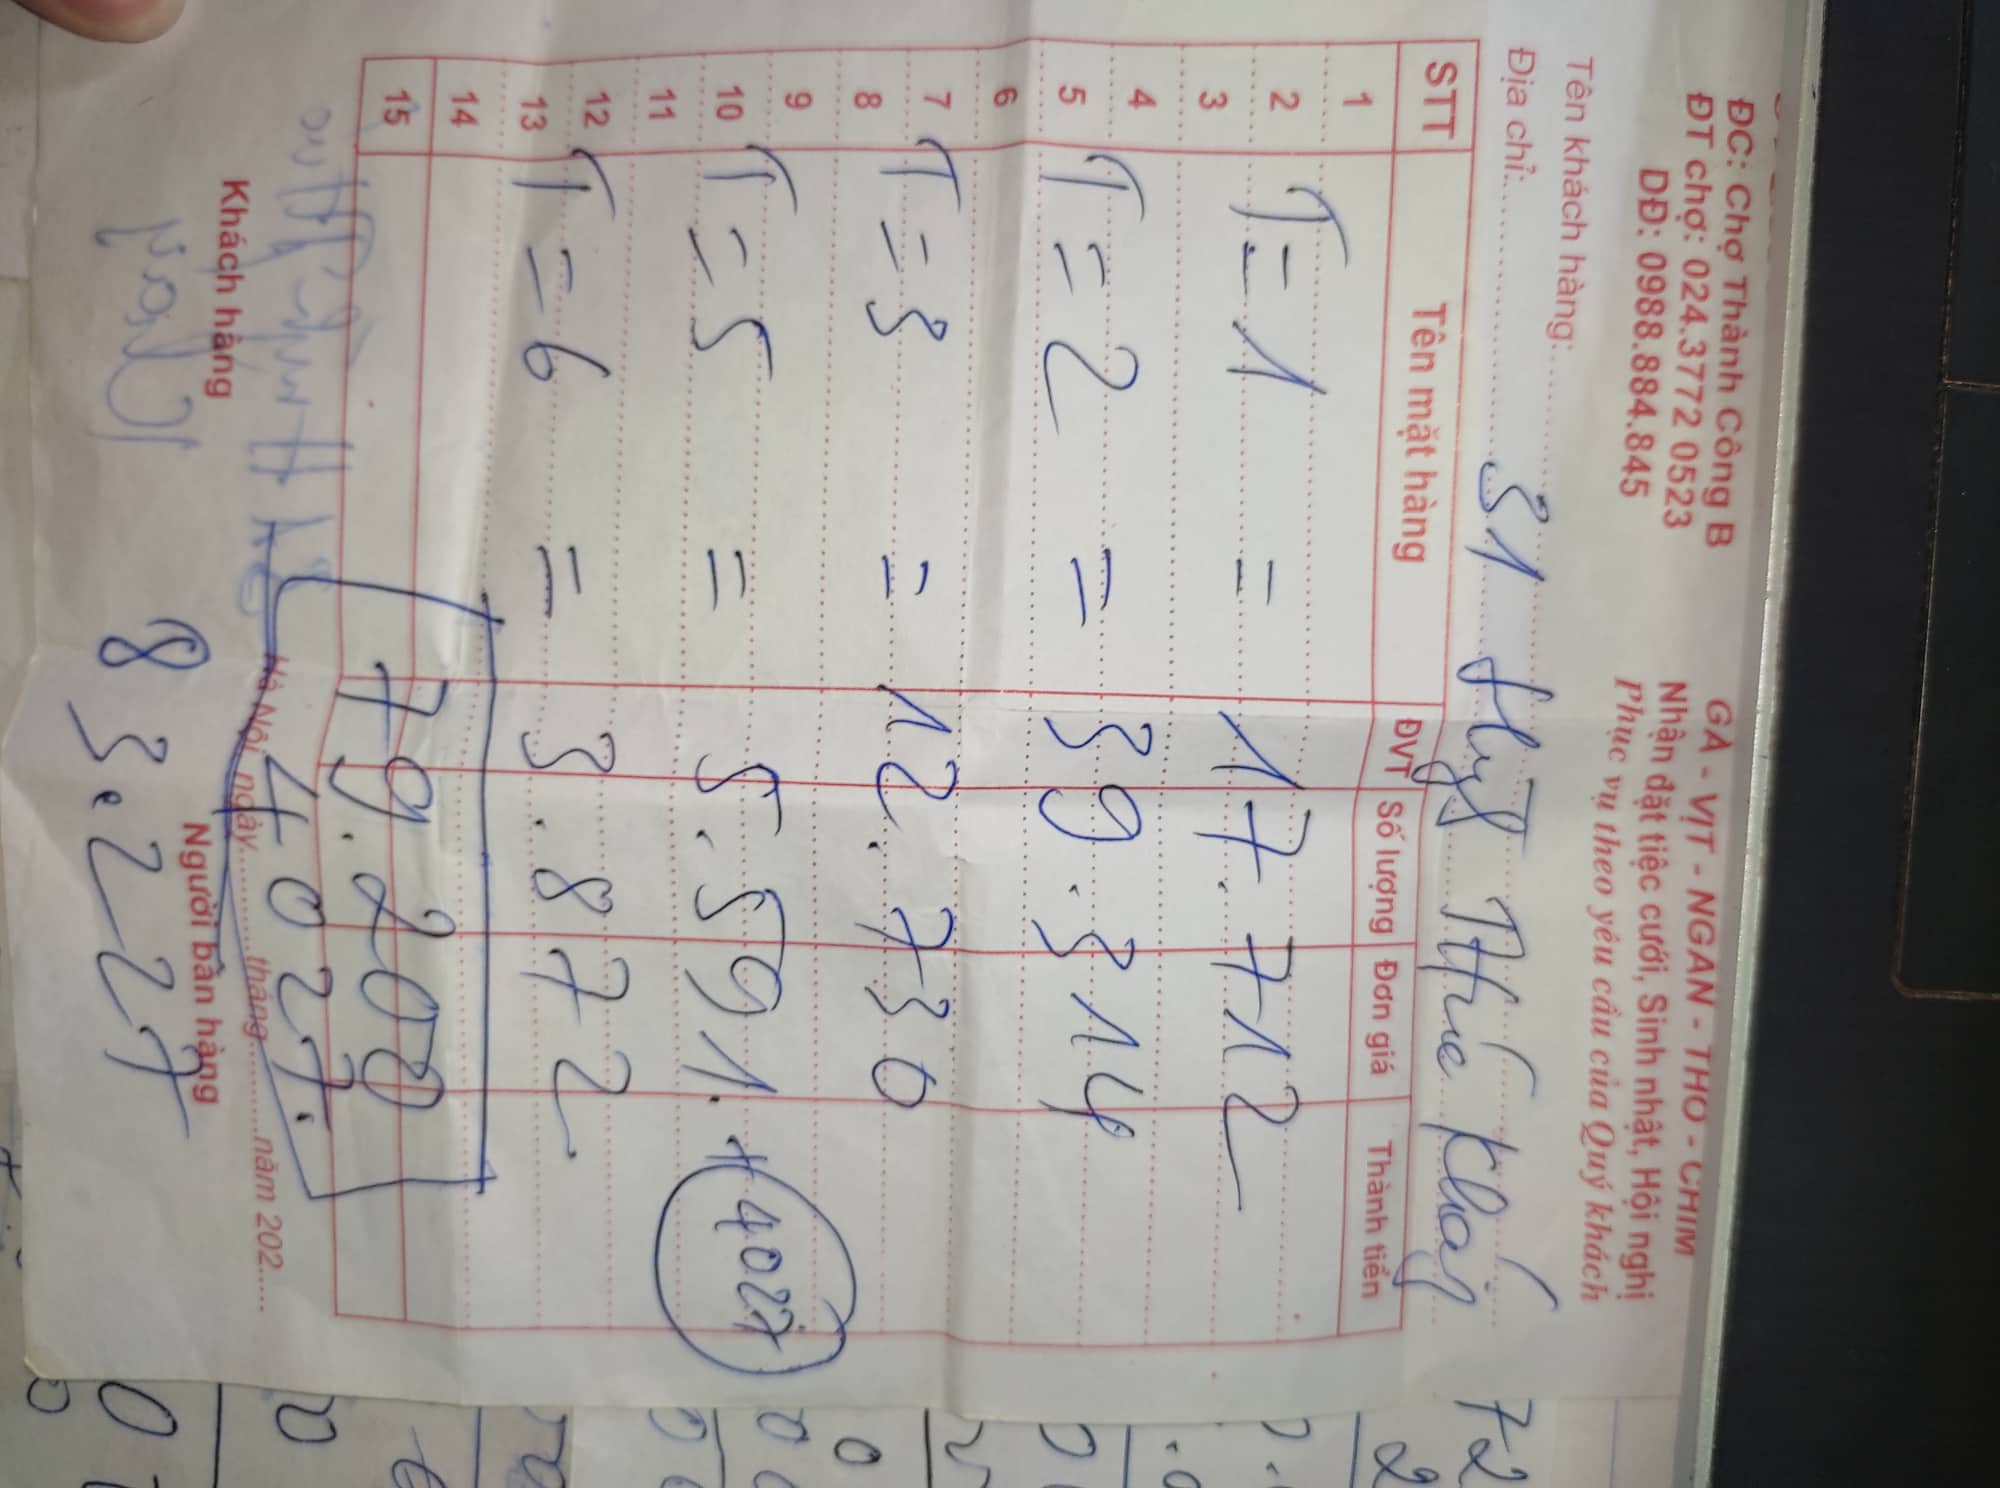 ĐC: Chợ Thành Công B
ĐT chợ: 024.3772 0523
DĐ: 0988.884.845
GÀ - VỊT - NGAN - THỎ - CHIM
Nhận đặt tiệc cưới, Sinh nhật, Hội nghị
Phục vụ theo yêu cầu của Quý khách
Tên khách hàng:
Địa chỉ:
STT Tên mặt hàng ĐVT Số lượng Đơn giá Thành tiền
1
2 T=1 = 17.712
3
4
5 T=2 = 39.314
6
7 T=3 = 12.730
8
9
10 T=5 = 5.591. + 4027
11
12 T=6 = 3.872
13
14
15 79.200
4027.
Hà Nội, ngày......tháng......năm 202....
Khách hàng Người bán hàng
83.227